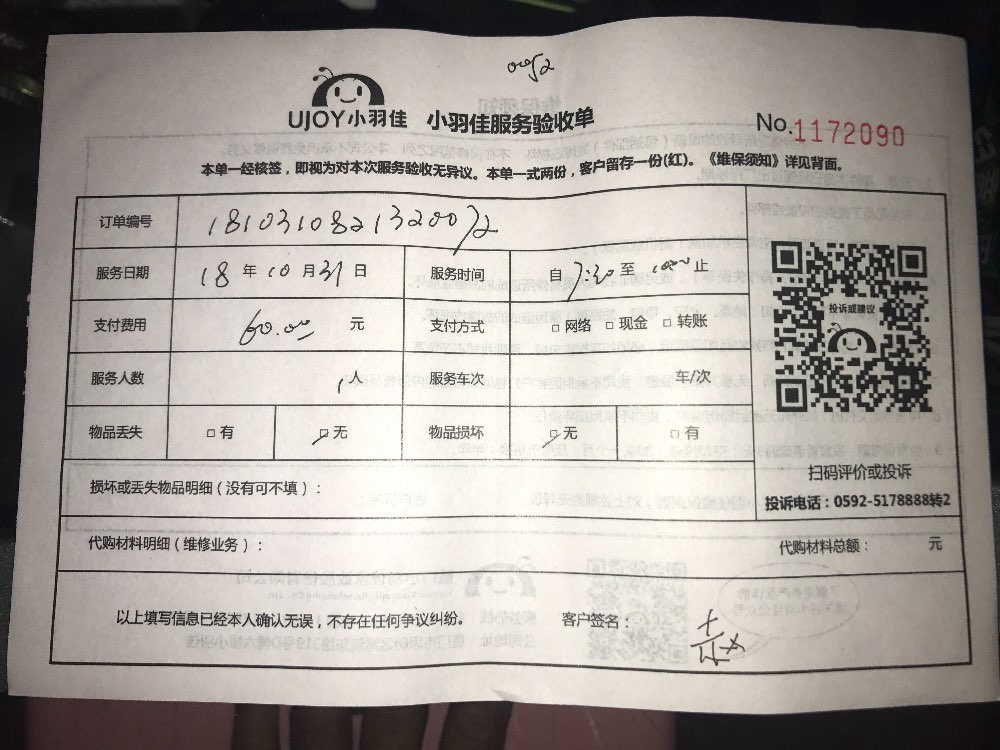 UJOY小羽佳 小羽佳服务验收单
No.1172090
本单一经核签，即视为对本次服务验收无异议。本单一式两份，客户留存一份(红)。《维保须知》详见背面。
订单编号 1810310821320072
服务日期 18 年 10 月 31 日 服务时间 自 7:30 至 止
支付费用 60.00 元 支付方式 □网络 □现金 □转账
投诉或建议
服务人数 1人 服务车次 车/次
物品丢失 □有 □无 物品损坏 □无 □有
扫码评价或投诉
损坏或丢失物品明细(没有可不填)：
投诉电话：0592-5178888转2
代购材料明细(维修业务)： 代购材料总额： 元
以上填写信息已经本人确认无误，不存在任何争议纠纷。 客户签名：